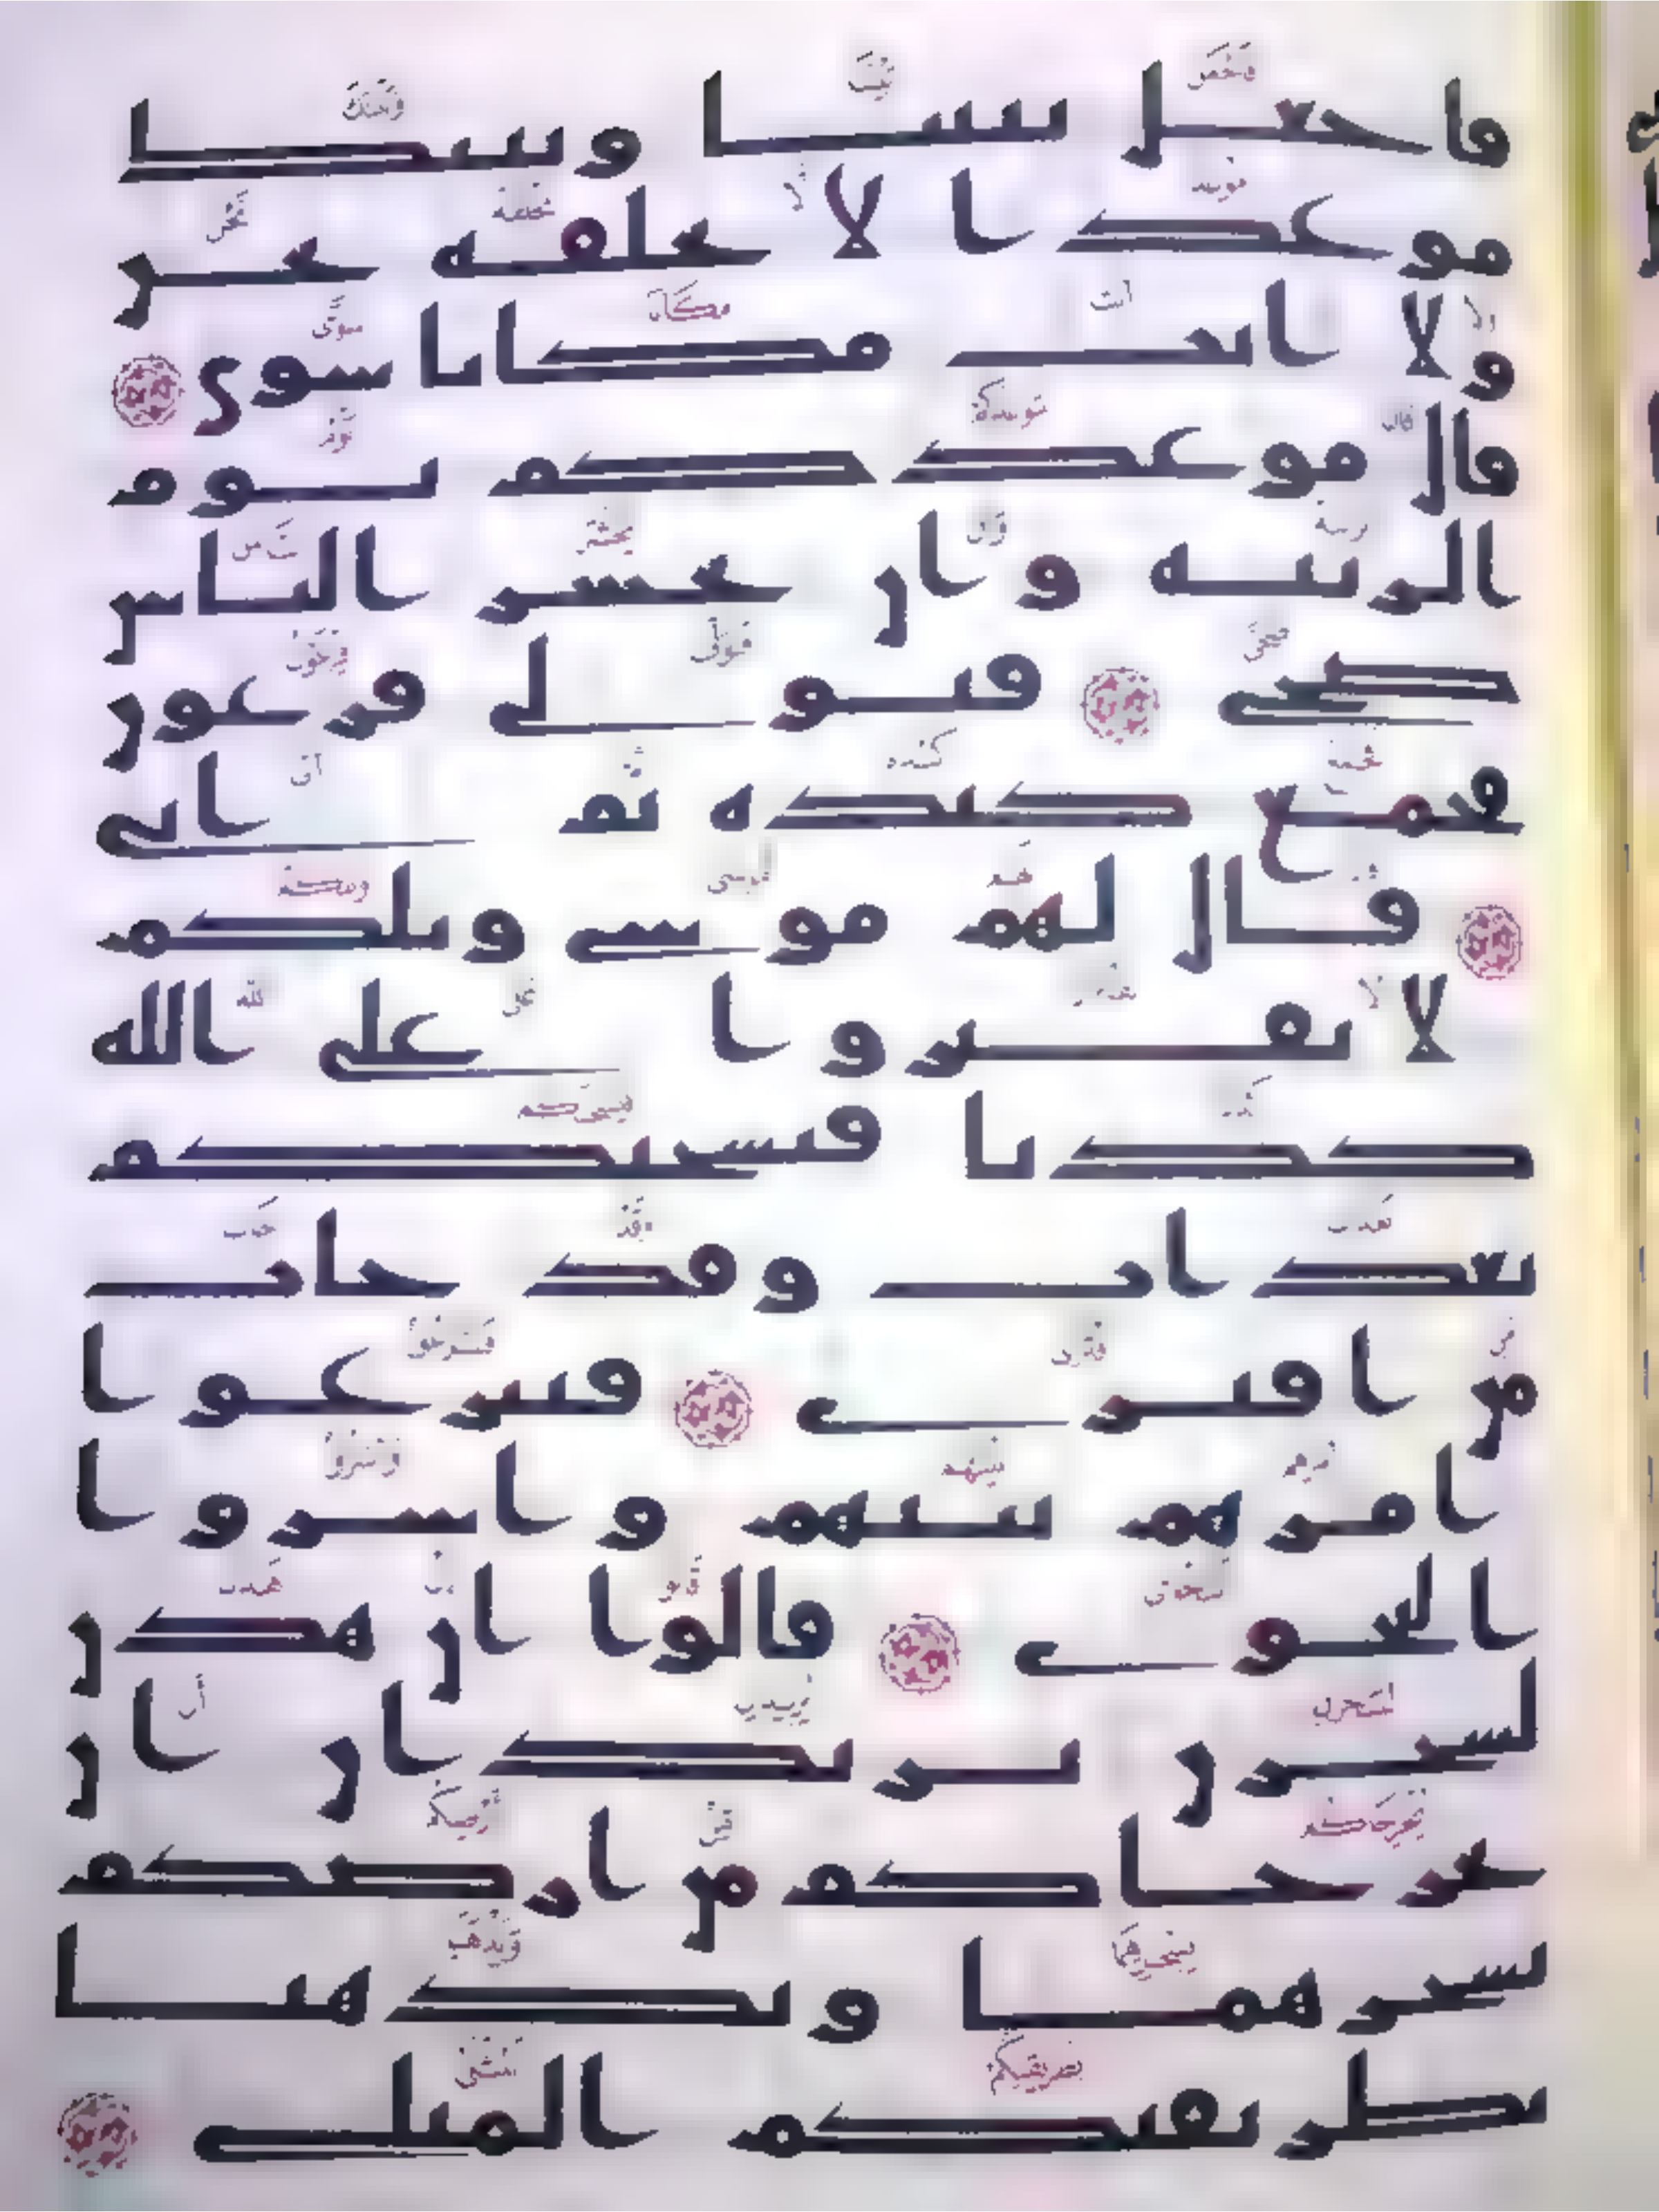 فاجعل بيننا وبينك
موعدا لا نخلفه نحن
ولا انت مكانا سوى
قال موعدكم يوم
الزينة وان يحشر الناس
ضحى فتولى فرعون
فجمع كيده ثم اتى
قال لهم موسى ويلكم
لا تفتروا على الله
كذبا فيسحتكم
بعذاب وقد خاب
من افترى فتنزعوا
امرهم بينهم واسروا
النجوى قالوا ان هذن
لسحرن يريدان ان
يخرجاكم من ارضكم
بسحرهما ويذهبا
بطريقتكم المثلى